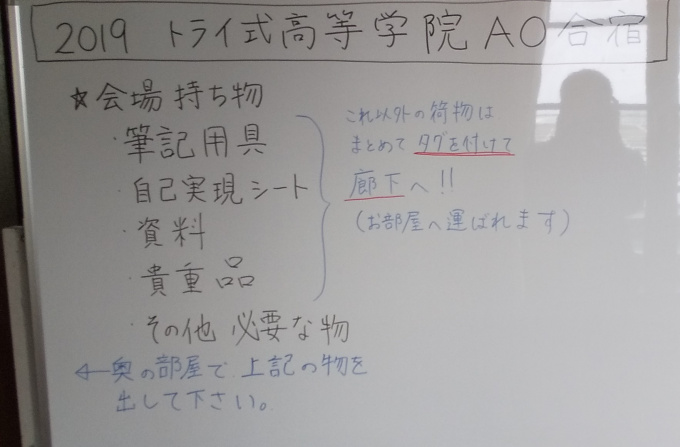 2019 トライ式高等学院 AO合宿
☆会場 持ち物
・筆記用具
・自己実現シート
・資料
・貴重品
・その他 必要な物
これ以外の荷物は
まとめて タグを付けて
廊下へ!!
(お部屋へ運ばれます)
←奥の部屋で 上記の物を
出して下さい。